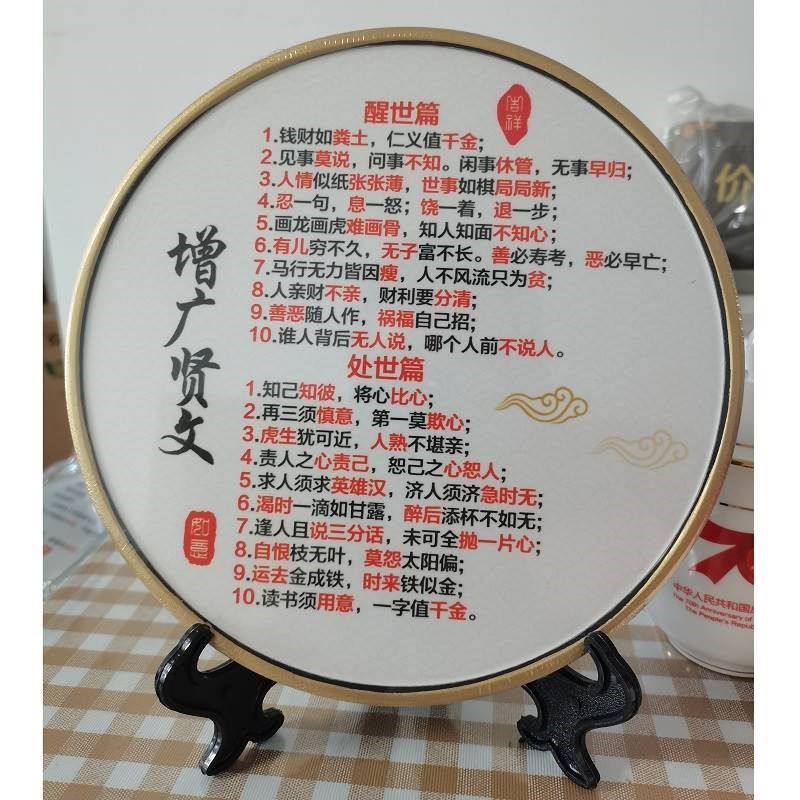 醒世篇
吉祥
1.钱财如粪土，仁义值千金；
2.见事莫说，问事不知。闲事休管，无事早归；
3.人情似纸张张薄，世事如棋局局新；
4.忍一句，息一怒；饶一着，退一步；
5.画龙画虎难画骨，知人知面不知心；
6.有儿穷不久，无子富不长。善必寿考，恶必早亡；
7.马行无力皆因瘦，人不风流只为贫；
8.人亲财不亲，财利要分清；
9.善恶随人作，祸福自己招；
10.谁人背后无人说，哪个人前不说人。
增广贤文
处世篇
1.知己知彼，将心比心；
2.再三须慎意，第一莫欺心；
3.虎生犹可近，人熟不堪亲；
4.责人之心责己，恕己之心恕人；
5.求人须求英雄汉，济人须济急时无；
6.渴时一滴如甘露，醉后添杯不如无；
7.逢人且说三分话，未可全抛一片心；
8.自恨枝无叶，莫怨太阳偏；
9.运去金成铁，时来铁似金；
10.读书须用意，一字值千金。
如意
价
中华人民共和国
The 70th Anniversary of
the People's Republ